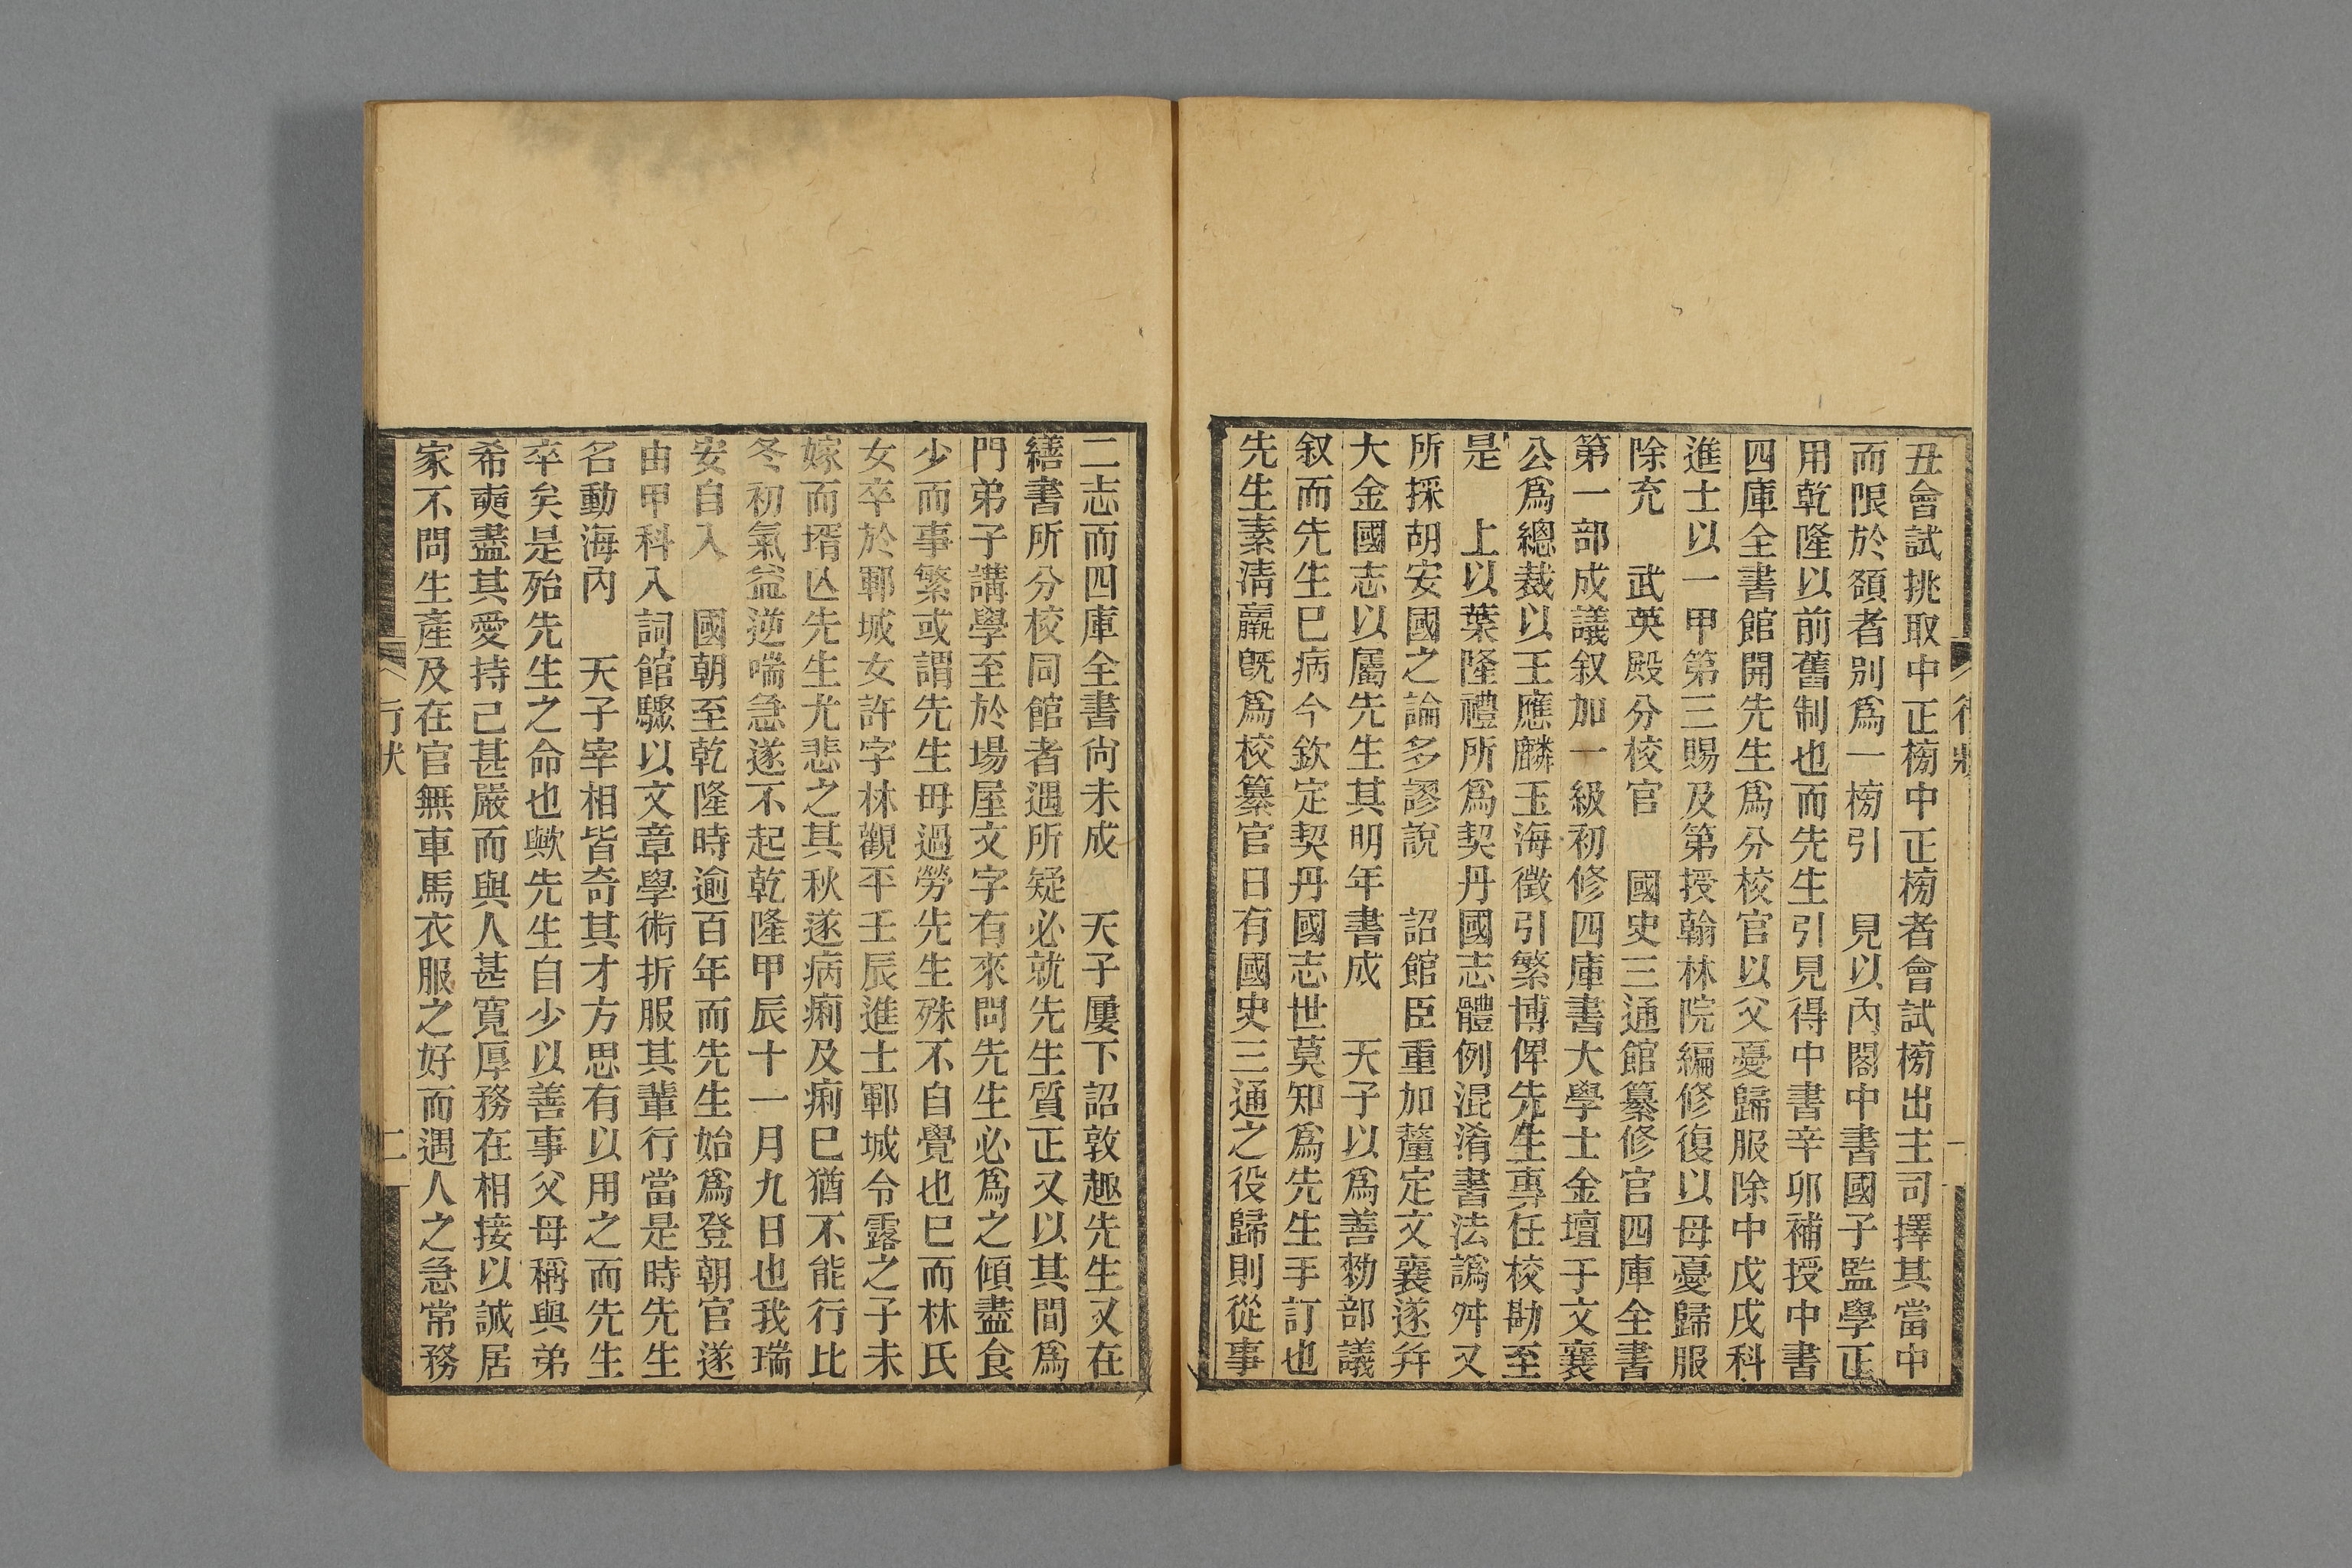 丑會試挑取中正榜中正榜者會試榜出主司擇其當中
而限於額者別爲一榜引　見以內閣中書國子監學正
用乾隆以前舊制也而先生引見得中書辛卯補授中書
四庫全書館開先生爲分校官以父憂歸服除中戊戌科
進士以一甲第三賜及第授翰林院編修復以母憂歸服
除充　武英殿分校官　國史三通館纂修官四庫全書
第一部成議叙加一級初修四庫書大學士金壇于文襄
公爲總裁以王應麟玉海徵引繁博俾先生專任校勘至
是　上以葉隆禮所爲契丹國志體例混淆書法譌舛又
所採胡安國之論多謬說　詔館臣重加釐定文襄遂并
大金國志以屬先生其明年書成　天子以爲善勑部議
叙而先生已病今欽定契丹國志世莫知爲先生手訂也
先生素清羸旣爲校纂官日有國史三通之役歸則從事
行狀
二志而四庫全書尙未成　天子屢下詔敦趣先生又在
繕書所分校同館者遇所疑必就先生質正又以其間爲
門弟子講學至於場屋文字有來問先生必爲之傾盡食
少而事繁或謂先生毋過勞先生殊不自覺也已而林氏
女卒於鄆城女許字林觀平壬辰進士鄆城令露之子未
嫁而壻亾先生尤悲之其秋遂病痢及痢已猶不能行比
冬初氣益逆喘急遂不起乾隆甲辰十一月九日也我瑞
安自入　國朝至乾隆時逾百年而先生始爲登朝官遂
由甲科入詞館驟以文章學術折服其輩行當是時先生
名動海內　天子宰相皆奇其才方思有以用之而先生
卒矣是殆先生之命也歟先生自少以善事父母稱與弟
希奭盡其愛持己甚嚴而與人甚寬厚務在相接以誠居
家不問生產及在官無車馬衣服之好而遇人之急常務
行狀
二